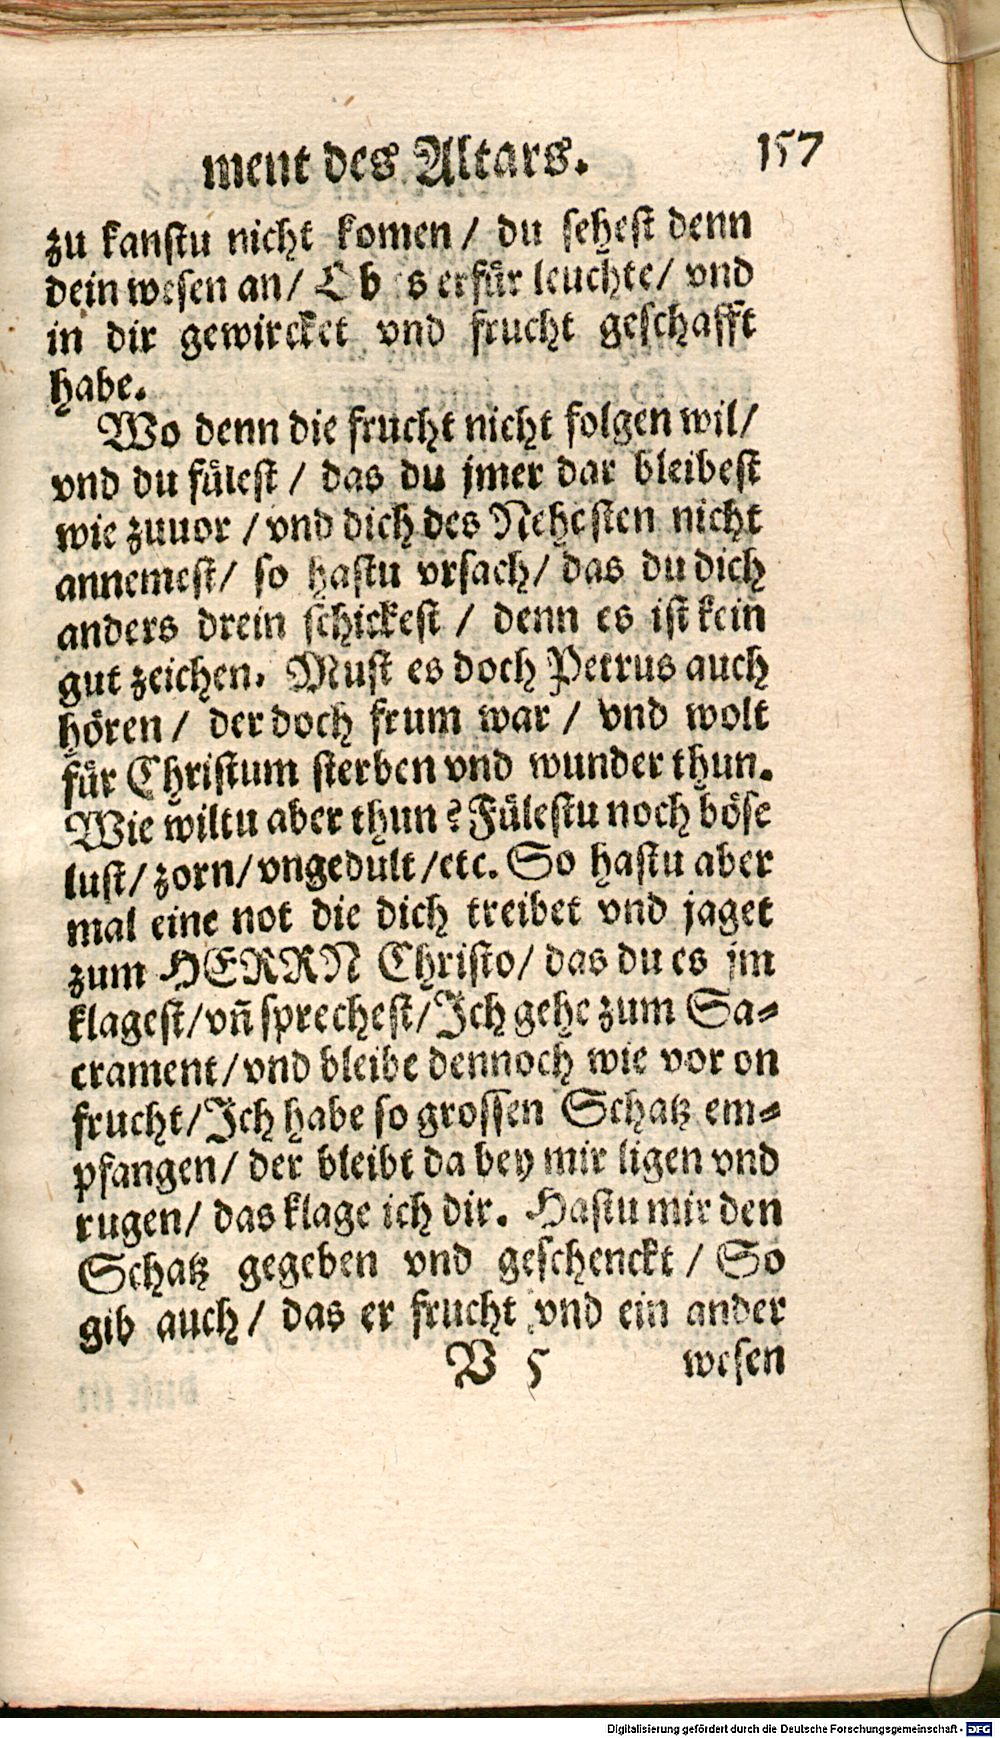 ment des Altars. 157
zu kanstu nicht komen / du sehest denn
dein wesen an / Ob es erfür leuchte / vnd
in dir gewircket vnd frucht geschafft
habe.
Wo denn die frucht nicht folgen wil /
vnd du fülest / das du jmer dar bleibest
wie zuuor / vnd dich des Nehesten nicht
annemest / so hastu vrsach / das du dich
anders drein schickest / denn es ist kein
gut zeichen. Must es doch Petrus auch
hören / der doch frum war / vnd wolt
für Christum sterben vnd wunder thun.
Wie wiltu aber thun? Fülestu noch böse
lust / zorn / vngedult / etc. So hastu aber
mal eine not die dich treibet vnd jaget
zum HERRN Christo / das du es jm
klagest / vñ sprechest / Ich gehe zum Sa⸗
crament / vnd bleibe dennoch wie vor on
frucht / Ich habe so grossen Schatz em⸗
pfangen / der bleibt da bey mir ligen vnd
rugen / das klage ich dir. Hastu mir den
Schatz gegeben vnd geschenckt / So
gib auch / das er frucht vnd ein ander
V 5 wesen
Digitalisierung gefördert durch die Deutsche Forschungsgemeinschaft - DFG